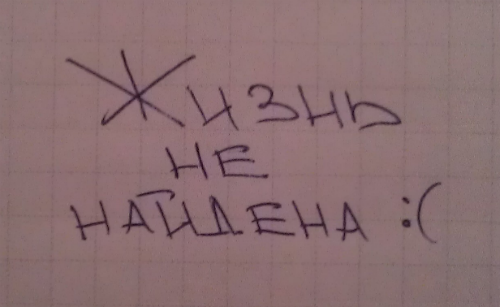 Жизнь
НЕ
НАЙДЕНА :(